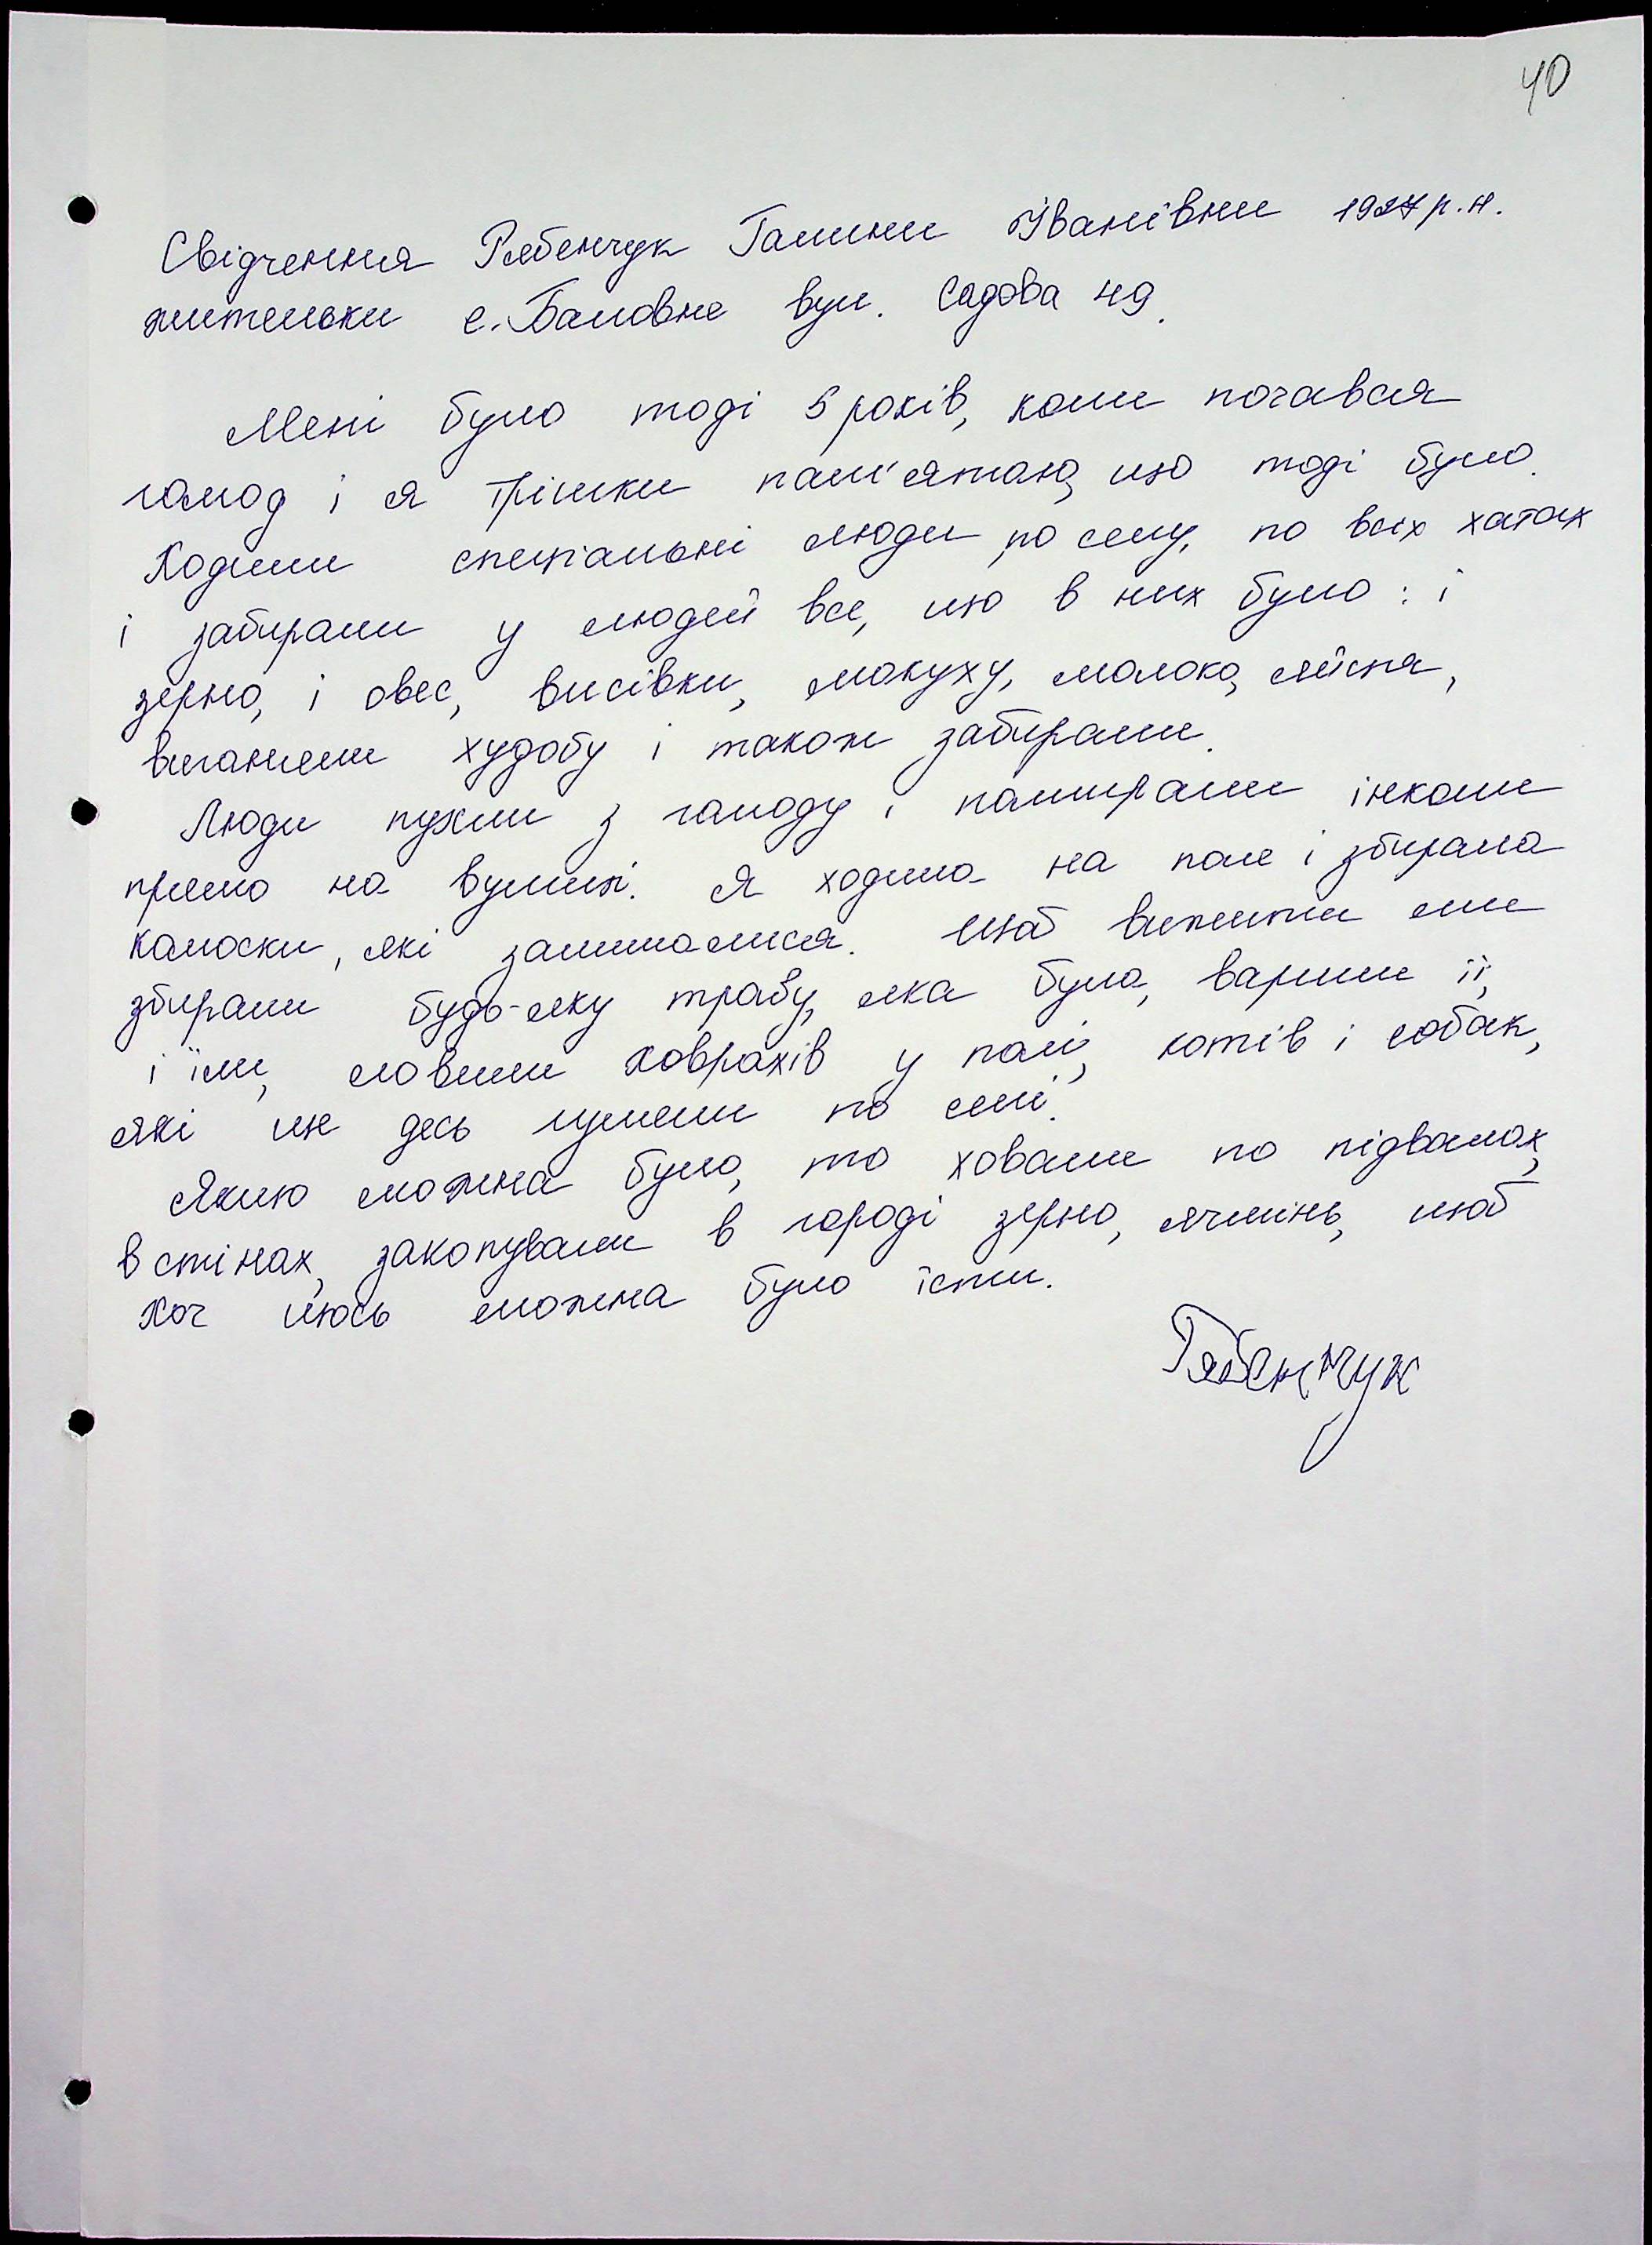 40
Свідчення Рябенчук Галини Іванівни 1927 р.н.
жительки с. Баловне вул. Садова 49.
Мені було тоді 5 років, коли почався
голод і я трішки пам'ятаю, що тоді було.
Ходили спеціальні люди по селу, по всіх хатах
і забирали у людей все, що в них було: і
зерно, і овес, висівки, макуху, молоко, яйця,
виганяли худобу і також забирали.
Люди пухли з голоду і помирали інколи
прямо на вулиці. Я ходила на поле і збирала
колоски, які залишалися. Щоб вижити ми
збирали будь-яку траву, яка була, варили її,
і їли, ловили ховрахів у полі, котів і собак,
які ще десь гуляли по селі.
Якщо можна було, то ховали по підвалах,
в стінах, закопували в городі зерно, ячмінь, щоб
хоч щось можна було їсти.
Рябенчук